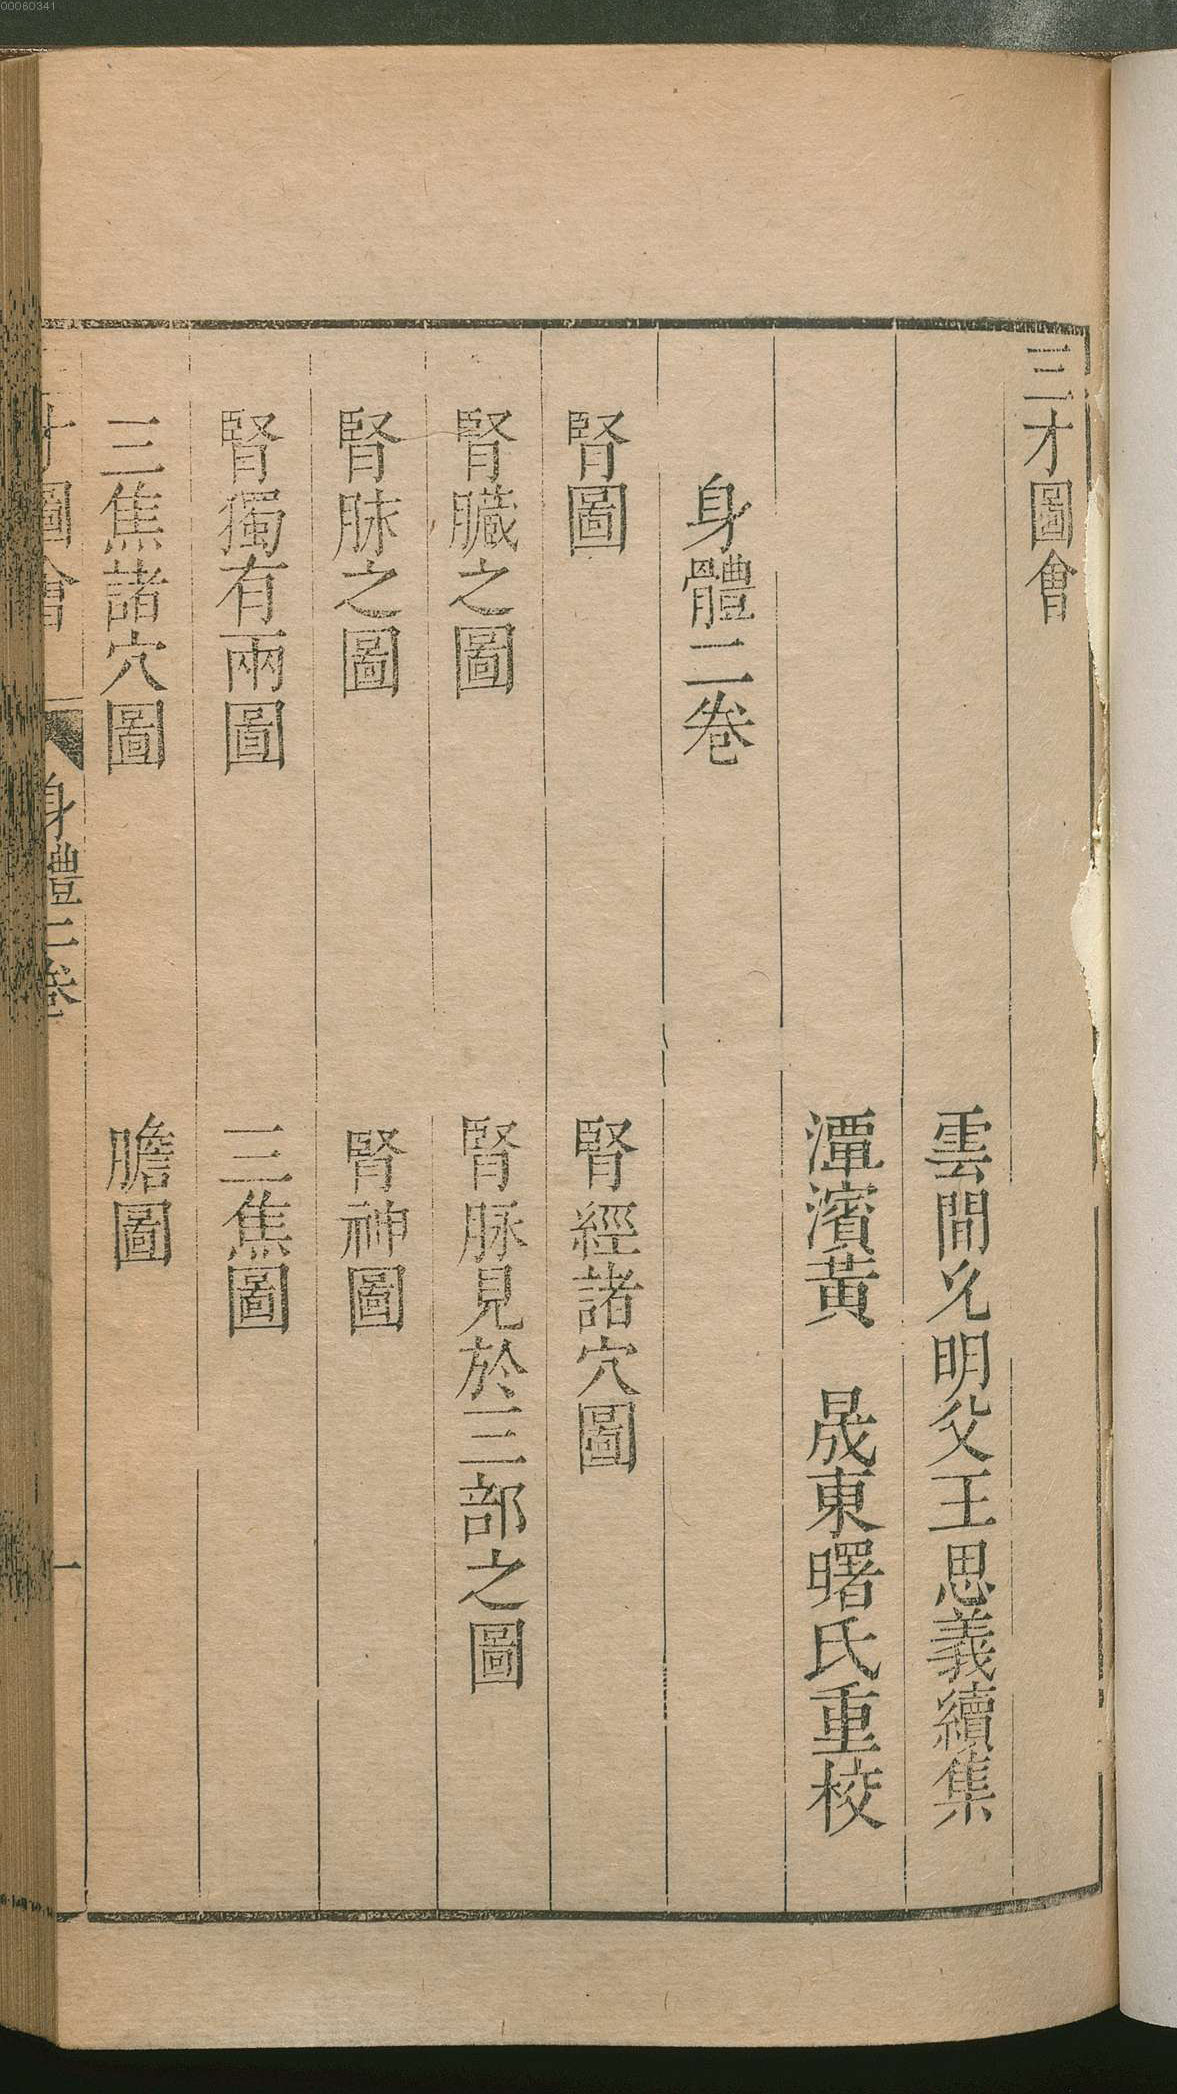 00060341
三才圖會
雲間允明父王思義續集
潭濱黃　晟東曙氏重校
身體二卷
腎圖　腎經諸穴圖
腎臟之圖　腎脉見於三部之圖
腎脉之圖　腎神圖
腎獨有兩圖　三焦圖
三焦諸穴圖　膽圖
三才圖會　身體二卷　一